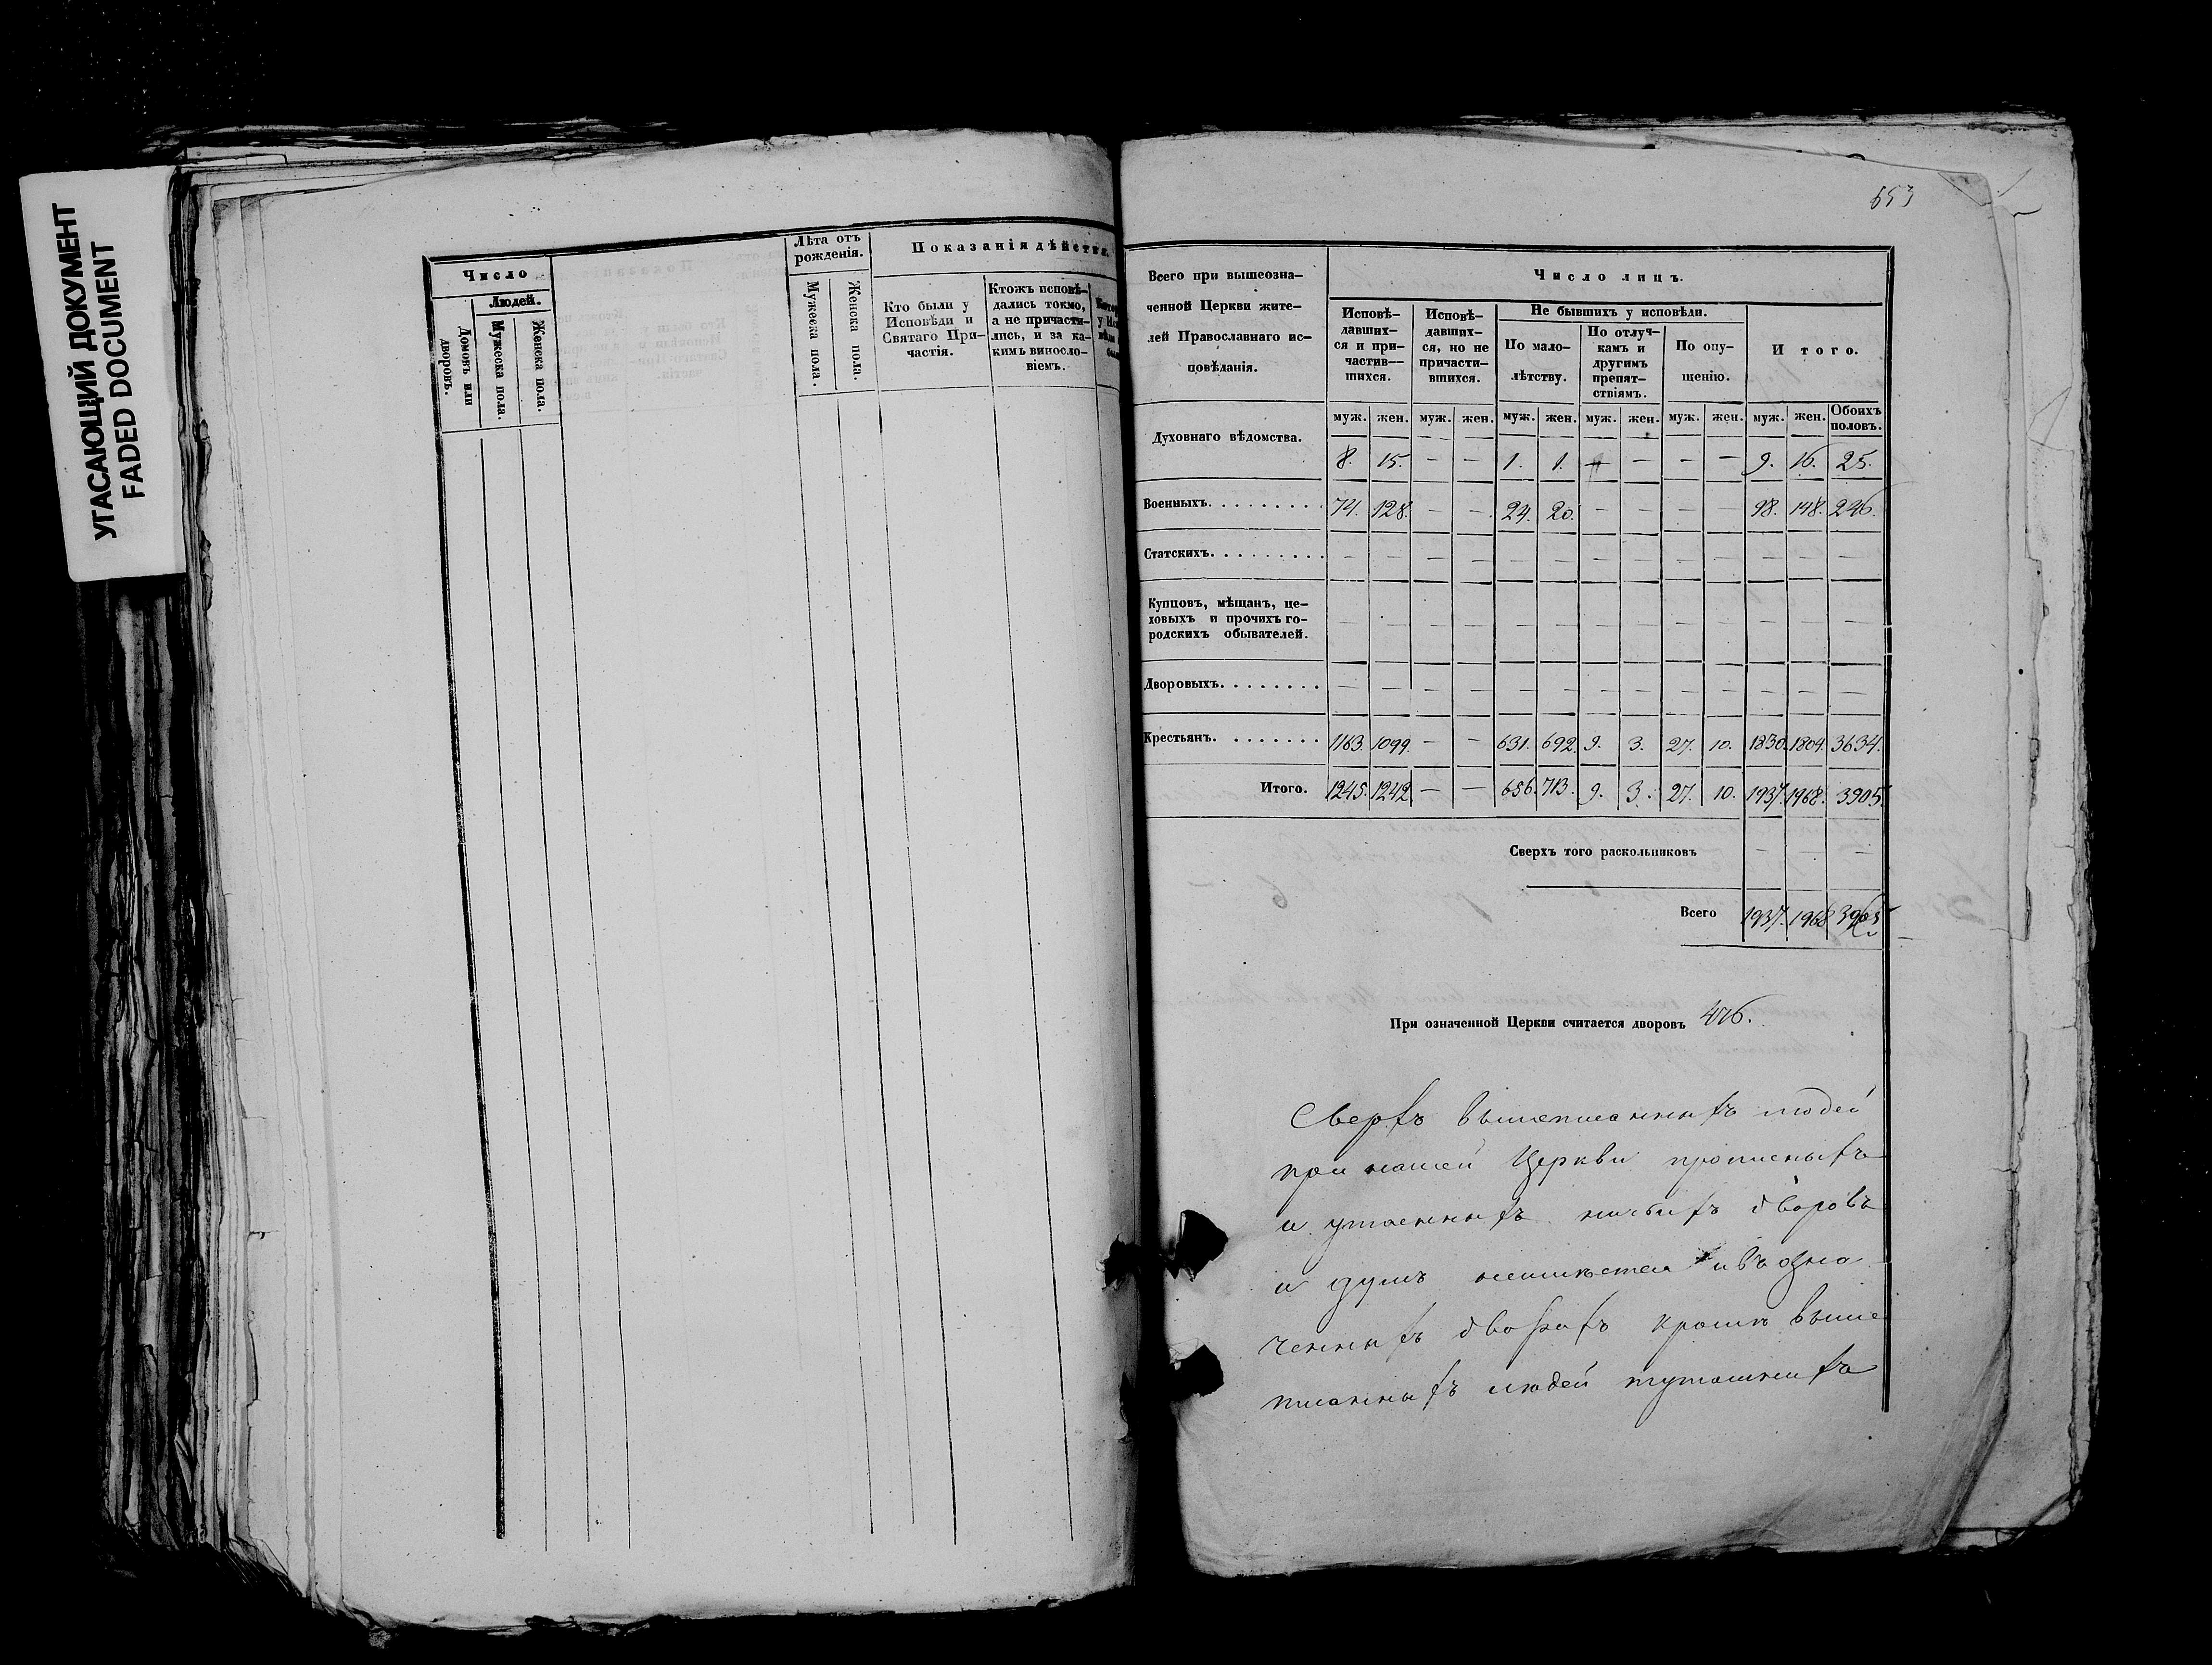 УГАСАЮЩИЙ ДОКУМЕНТ
FADED DOCUMENT
Число
Людей.
Домовъ или дворовъ.
Мужеска пола.
Женска пола.
Лѣта отъ
рожденія.
Мужеска пола.
Женска пола.
Показанія дѣйстви
Кто были у
Исповѣди и
Святаго При-
частія.
Ктожъ исповѣ-
дались токмо,
а не причасти-
лись, и за ка-
кимъ винosло-
віемъ.
653
Всего при вышеозна-
ченной Церкви жите-
лей Православнаго ис-
повѣданія.
Число лицъ.
Исповѣ-
давших-
ся и при-
частив-
шихся.
Исповѣ-
давших-
ся, но не
причасти-
вшихся.
Не бывшихъ у исповѣди.
По мало-
лѣтству.
По отлуч-
камъ и
другимъ
препят-
ствіямъ.
По опу-
щенію.
Итого.
муж. жен. муж. жен. муж. жен. муж. жен. муж. жен. муж. жен. Обоихъ половъ.
Духовнаго вѣдомства. 8. 15. — — 1. 1. — — — 9. 16. 25.
Военныхъ. . . . . . . . . 74. 128. — — 24. 20. — — — — 98. 148. 246.
Статскихъ. . . . . . . . . — — — — — — — — — — — — —
Купцовъ, мѣщанъ, це-
ховыхъ и прочихъ го-
родскихъ обывателей. — — — — — — — — — — — — —
Дворовыхъ. . . . . . . . — — — — — — — — — — — — —
Крестьянъ. . . . . . . . 1163. 1099. — — 631. 692. 9. 3. 27. 10. 1830. 1804. 3634.
Итого. 1245. 1242. — — 656. 713. 9. 3. 27. 10. 1937. 1968. 3905.
Сверхъ того раскольниковъ — — —
Всего 1937. 1968 3905
При означенной Церкви считается дворовъ 476.
Сверхъ вышеписанныхъ людей
при нашей Церкви прописныхъ
и утаенныхъ ничьихъ дворовъ
и душъ неимѣется и въ озна
ченныхъ дворахъ кромѣ выше
писанныхъ людей тутошнихъ